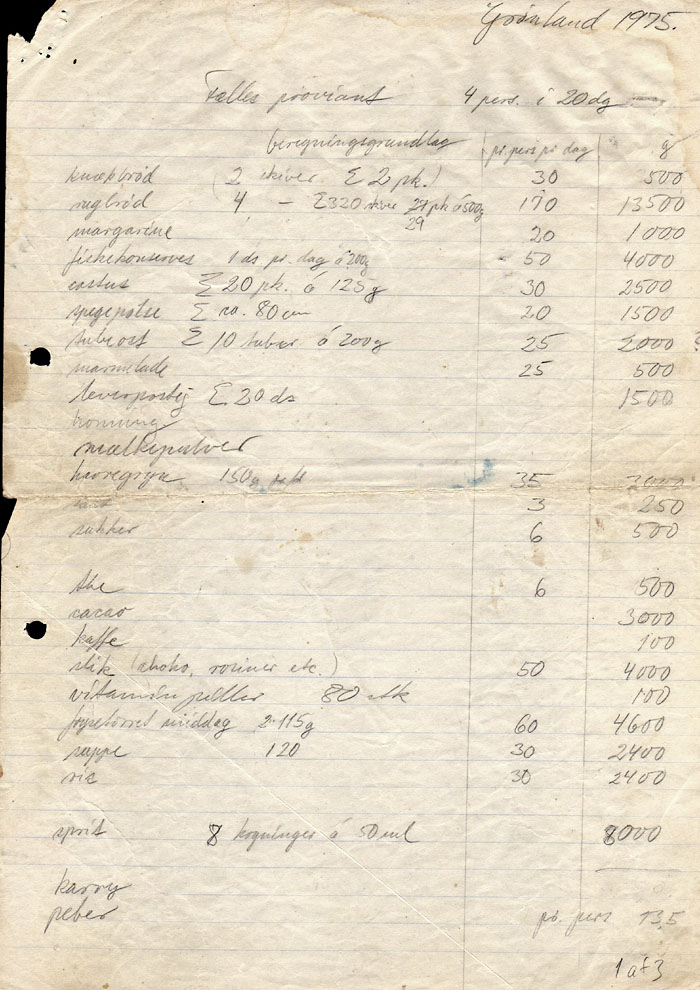 Grønland 1975.
Fælles proviant 4 pers. i 20 dg
beregningsgrundlag pr. pers pr dag g
knækbrød (2 skiver Σ 2 pk.) 30 500
rugbrød 4 — Σ 320 skiver 27 pk á 500g 170 13500
29
margarine 20 1000
fiskekonserves 1 ds pr. dag á 200g 50 4000
ostus Σ 20 pk. á 125g 30 2500
spegepølse Σ ca. 80 cm 20 1500
tubeost Σ 10 tuber á 200g 25 2000
marmelade 25 500
leverpostej Σ 20 ds 1500
honning
mælkepulver
havregryn 150g 35 3000
salt 3 250
sukker 6 500
the 6 500
cacao 3000
kaffe 100
slik (choko, rosiner etc.) 50 4000
vitamin piller 80 stk 100
frysetørret middag 2·115g 60 4600
suppe 120 30 2400
ris 30 2400
sprit 8 kogninger á 50 ml 8000
karry
peber pr. pers 13,5
1 af 3